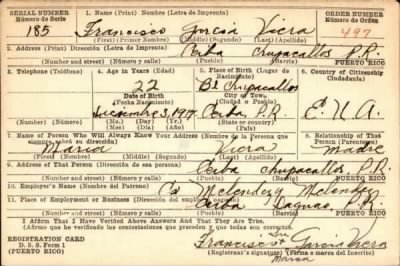 SERIAL NUMBER 1. Name (Print) Nombre (Letra de Imprenta) ORDER NUMBER
Número de Serie Número de Orden
185 Francisco García Viera 497
(First) (Primer Nombre) (Middle) (Segundo) (Last) (Apellido)
2. Address (Print) Dirección (Letra de Imprenta)
Ceiba Chupacallos P.R.
Number and street, Número y calle Town, Pueblo PUERTO RICO
3. Telephone (Teléfono) 4. Age in Years (Edad) 5. Place of Birth (Lugar de Nacimiento) 6. Country of Citizenship Ciudadanía
22 Bº Chupacallos
Date of Birth City of Town.
(Fecha Nacimiento) (Ciudad o Pueblo)
Diciembre 3, 1917 Ceiba P.R. E.U.A.
(Mo.) (Day) (Yr.)
(Mes) (Día) (Año) PUERTO RICO
7. Name of Person Who Will Always Know Your Address (Nombre de la Persona que siempre sabrá su dirección) 8. Relationship of That Person (Parentesco)
María Viera Madre
(First) (Nombre) (Middle) (Segundo) (Last) (Apellido)
9. Address of That Person (Dirección de esa persona)
Ceiba Chupacallos P.R.
Number and street, Número y calle Town, Pueblo PUERTO RICO
10. Employer's Name (Nombre del Patrono)
Melendez Melendez
11. Place of Employment or Business (Dirección del empleo)
Ceiba P.R.
Number and street, Número y calle Town, Pueblo PUERTO RICO
I Affirm That I Have Verified Above Answers And That They Are True.
Afirmo que he verificado las contestaciones que preceden y que todas son correctas.
REGISTRATION CARD
D. S. S. Form 1
(PUERTO RICO)
Su
Francisco + García Viera
(Registrant's signature) (Firma o marca del Inscrito)
Marca